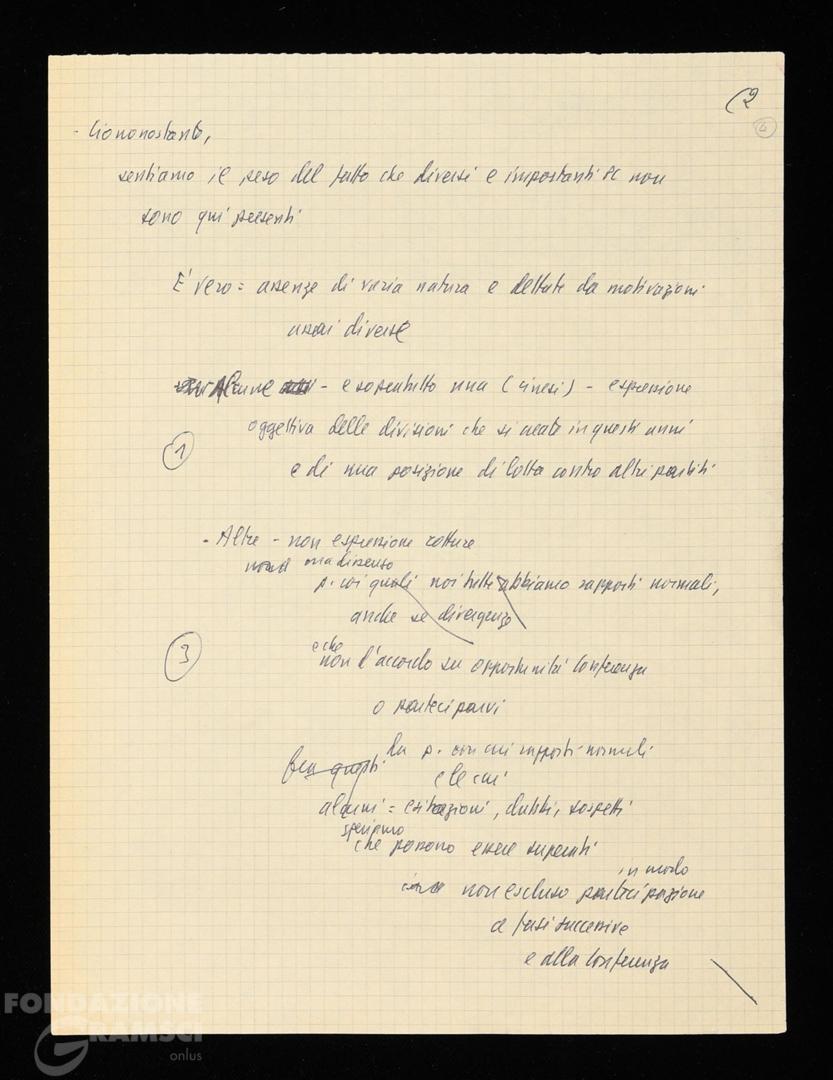 (2
4
- Ciononostante,
sentiamo il peso del fatto che diversi e importanti PC non
sono qui presenti
E' vero = assenze di varia natura e dettate da motivazioni
assai diverse
Alcune - e soprattutto una (cinesi) - espressione
oggettiva delle divisioni che si create in questi anni
1
e di una posizione di lotta contro altri partiti
- Altre - non espressione rotture
ma dissenso
p. coi quali noi tutti abbiamo rapporti normali,
anche se divergenze
3
e che
non d'accordo su opportunità Conferenza
o parteciparvi
tra p. con cui rapporti normali
fra questi
e le cui
alcuni = esitazioni, dubbi, sospetti
speriamo
che possono essere superati
in modo
non escluso partecipazione
a fasi successive
e alla Conferenza
FONDAZIONE
GRAMSCI
onlus